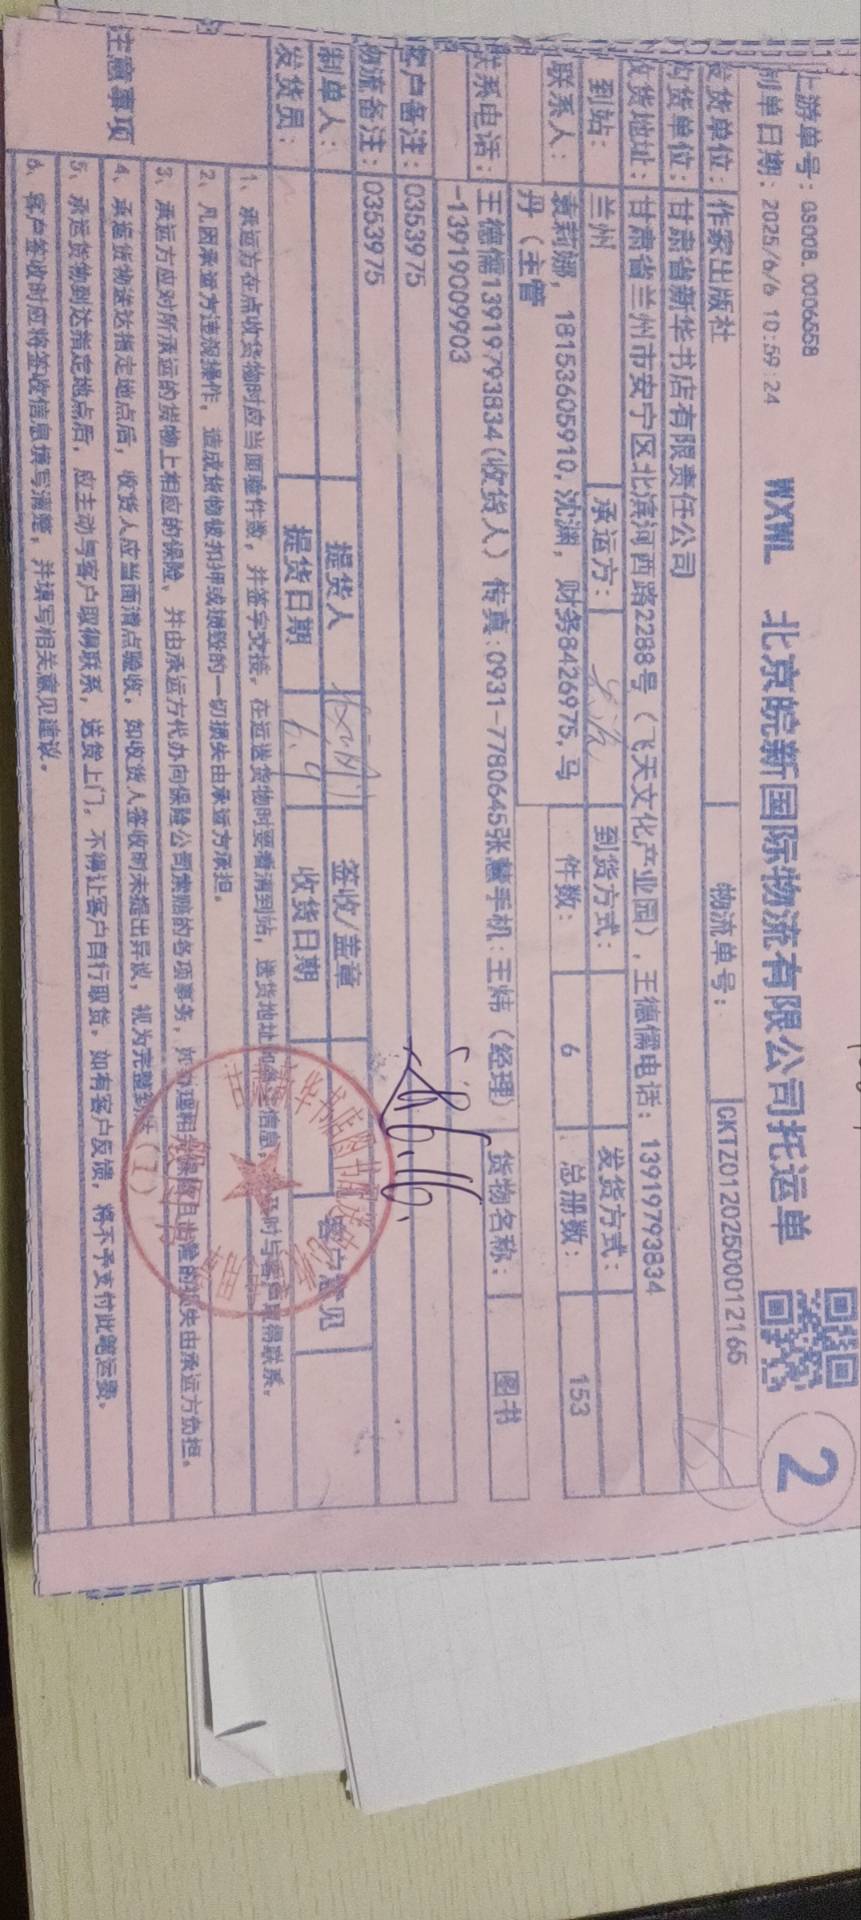 上游单号：GS008.0006558
制单日期：2025/6/6 10:59:24
WXWL 北京皖新国际物流有限公司托运单
2
发货单位：作家出版社 物流单号：CKTZ01202500012165
购货单位：甘肃省新华书店有限责任公司
收货地址：甘肃省兰州市安宁区北滨河西路2288号（飞天文化产业园），王德儒电话：13919793834
到站：兰州 承运方： 到货方式： 发货方式：
联系人：袁莉娜，18153605910，沈渊，财务8426975，马丹（主管 件数：6 总册数：153
联系电话：王德儒13919793834(收货人）传真:0931-7780645张慧手机:王炜（经理）-13919009903 货物名称：图书
客户备注：0353975
物流备注：0353975
制单人： 提货人 签收/盖章 客户意见
发货员： 提货日期 6.9 收货日期
6.16.
注意事项
1、承运方在点收货物时应当面验件数，并签字交接，在运送货物时要看清到站，送货地址 信息， 及时与客户取得联系。
2、凡因承运方违规操作，造成货物被扣押或损毁的一切损失由承运方承担。
3、承运方应对所承运的货物上相应的保险，并由承运方代办向保险公司索赔的各项事务， 的损失由承运方负担。
4、承运货物送达指定地点后，收货人应当面清点验收，如收货人签收时未提出异议，视为完整到达
5、承运货物到达指定地点后，应主动与客户取得联系，送货上门，不得让客户自行取货，如有客户反馈，将不予支付此笔运费。
6、客户签收时应将签收信息填写清楚，并填写相关意见建议。